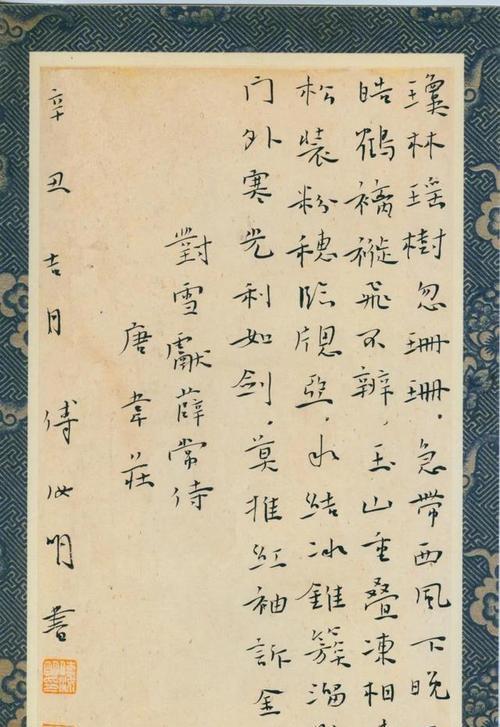 瓊林瑶樹忽珊珊，急帶西風下晚
皓鶴褵褷飛不辨，玉山重叠凍相
松裝粉穗臨牕亞，水結冰錐簇溜
门外寒光利如劍，莫推紅袖訴金
對雪獻薛常侍
唐韋莊
辛丑吉月 傅汝明書